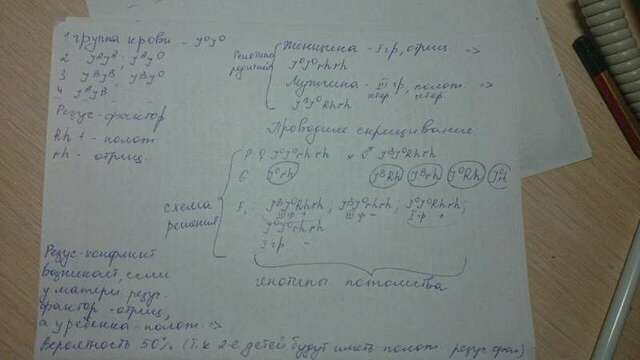 1 группа крови - J⁰J⁰
2 JᴬJᴬ; JᴬJ⁰
3 JᴮJᴮ; JᴮJ⁰
4 JᴬJᴮ
Резус-фактор
Rh + - полож
rh - - отриц.
Генотипы родителей
Женщина - I гр, отриц =>
J⁰J⁰rhrh
Мужчина - III гр, полож. =>
J⁰Rhrh
Проводим скрещивание
схема решения
P: ♀ J⁰J⁰rhrh x ♂ JᴮJ⁰Rhrh
G J⁰rh JᴮRh Jᴮrh J⁰Rh
F₁: JᴮJ⁰Rhrh; JᴮJ⁰rhrh; J⁰J⁰Rhrh;
III гр + III гр - I гр +
J⁰J⁰rhrh
I гр -
генотипы потомства
Резус-конфликт
возникает, если
у матери резус-
фактор - отриц,
а у ребенка - полож =>
вероятность 50% (т.к 2-е детей будут иметь полож. резус фак)